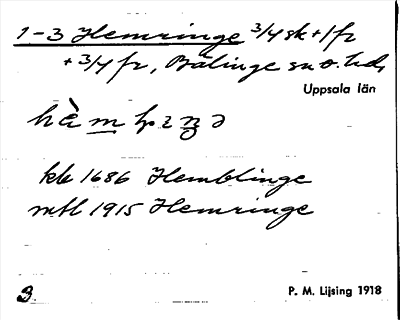 1-3 Hemringe 3/4 sk + 1 fr
+ 3/4 fr, Bälinge sn o. hd,
Uppsala län
kb 1686 Hemblinge
mtl 1915 Hemringe
3.
P. M. Lijsing 1918